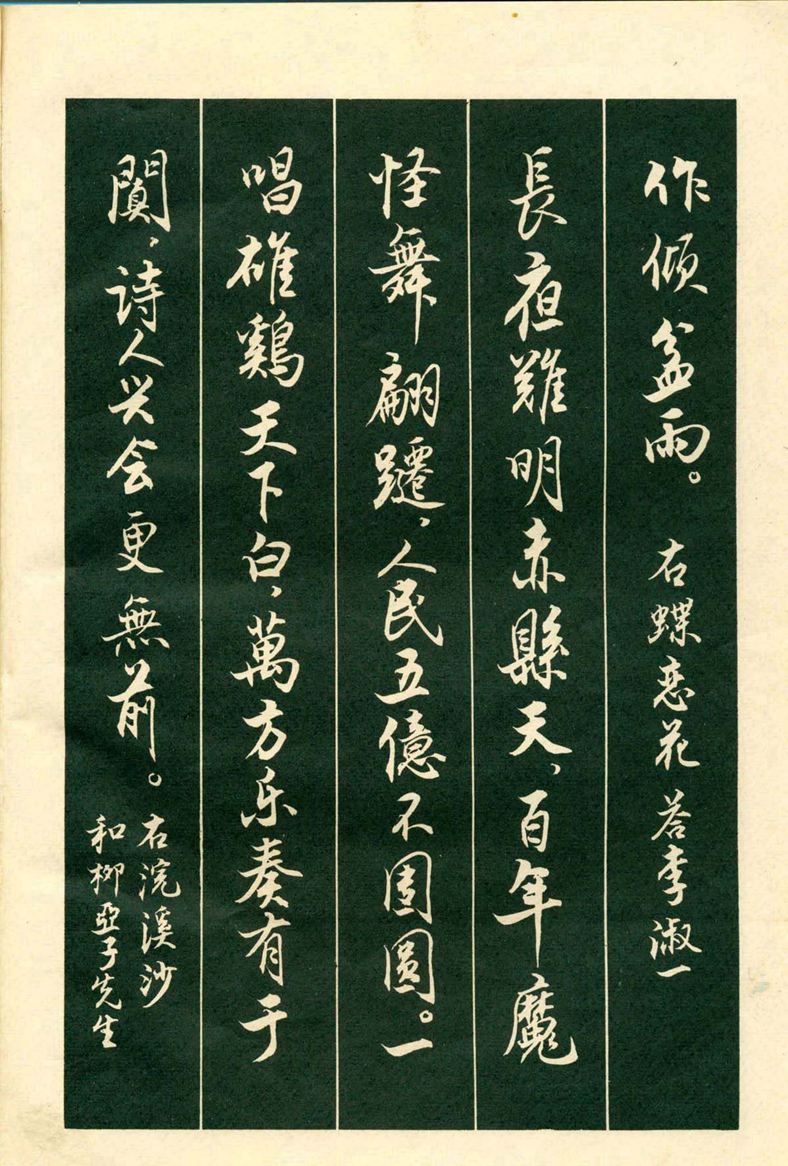 作傾盆雨。 右蝶恋花 荅李淑一
長夜難明赤縣天，百年魔
怪舞翩躚，人民五億不團圓。一
唱雄鷄天下白，萬方乐奏有于
闐，诗人兴会更無前。
右浣溪沙
和柳亞子先生